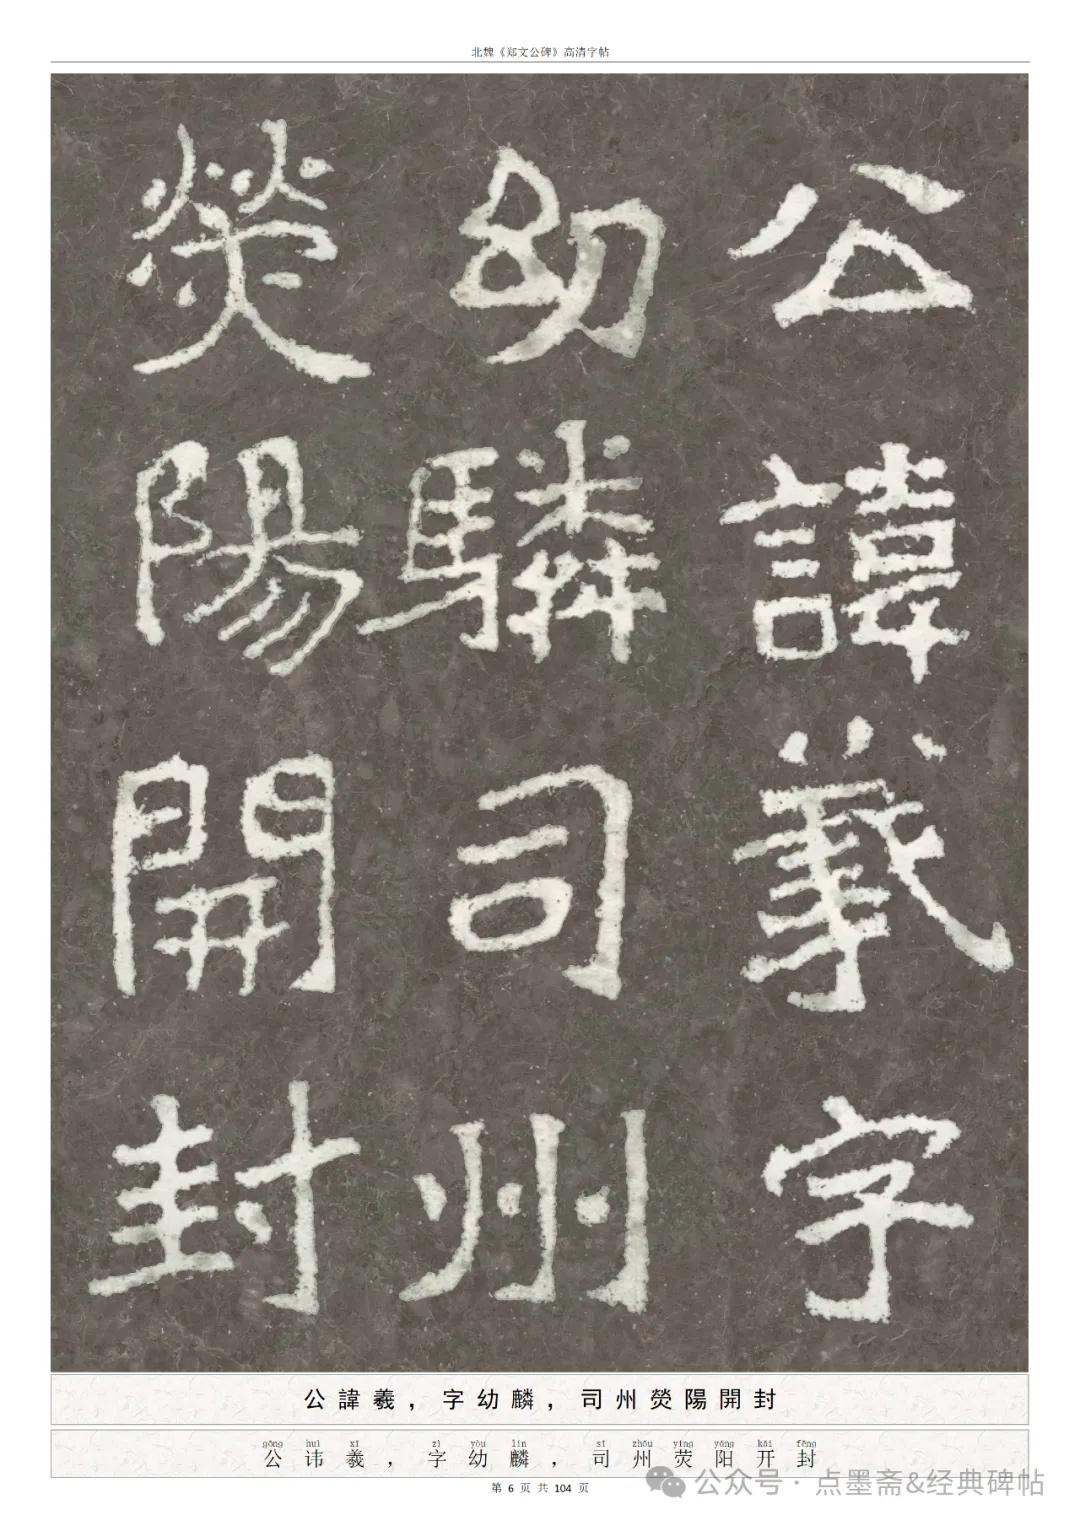 北魏《郑文公碑》高清字帖
公諱羲字
幼驎司州
熒陽開封
公諱羲，字幼麟，司州熒陽開封
gōng huì xī zì yòu lín sī zhōu yíng yáng kāi fēng
公讳羲，字幼麟，司州荧阳开封
第 6 页 共 104 页
公众号·点墨斋&经典碑帖